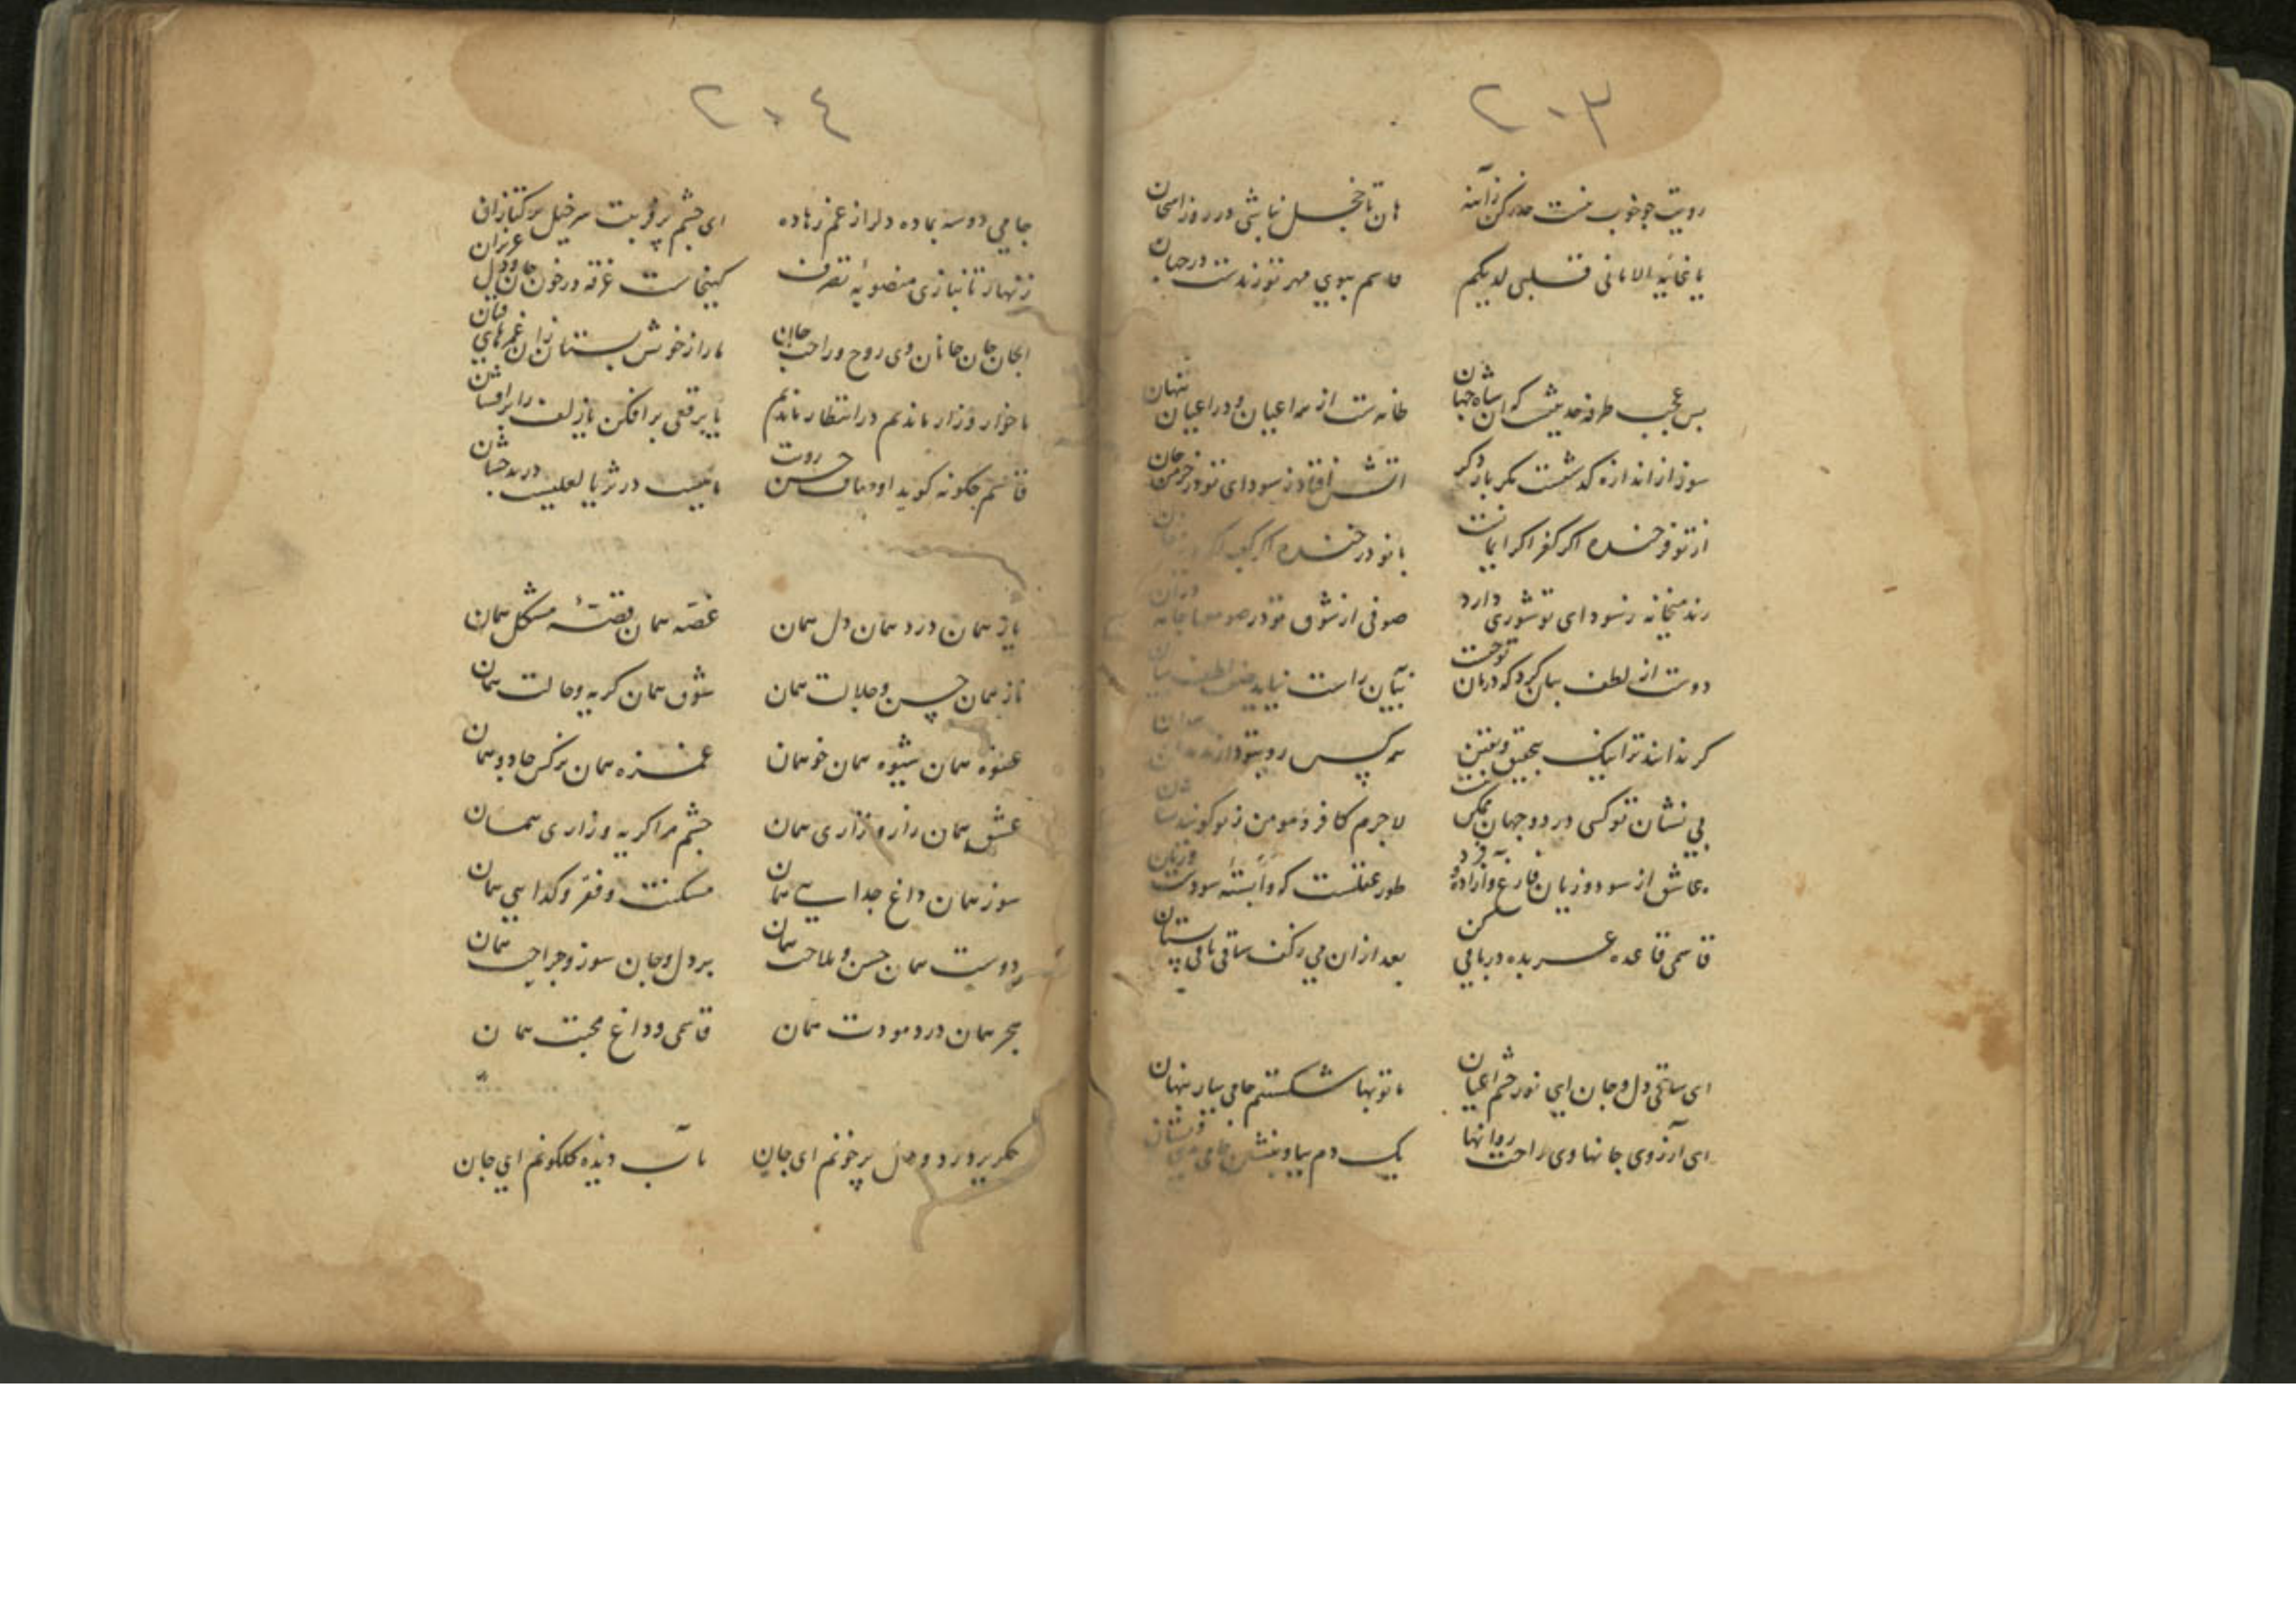 ٢٠٣
رویت چو خوب نیست حذر کن ز آینه هان تا خجل نباشی در روز امتحان
یا غایة الامانی قلبی لدیکم قاسم ببوی مهر تو زندست در جهان
بس عجب طرفه حدیثیست که آن شاه جهان ز همه اعیان و در اعیان پنهان
سوز از اندازه گذشتست مگر بار دگر آتش افتاد ز سودای تو در خرمن جان
از تو فرخنده اگر کفر اگر ایمانست با تو درخنده اگر کعبه اگر
رند میخانه ز سودای تو شوری دارد صوفی از شوق تو در صومعها
دوست از لطف بیان کرد که در جان به بیان راست نیاید صفت لطف بیان
گر ندانند ترا نیک بتحقیق و یقین همه کس روی بتو دارند
بی نشان تو کسی در دو جهان ممکن نیست لاجرم کافر و مومن ز تو گویند نشان
عاشق از سود و زیان فارغ و آزاده و فرد طور عقلست که وابسته سودست و زیان
قاسمی قاعده عربده در باقی کن بعد ازان می ز کف ساقی باقی بستان
ای ساقی دل و جان ای نور چشم اعیان ما توبها شکستیم جامی بیار پنهان
ای آرزوی جانها وی راحت روانها یک دم بیا و بنشین جامی بنوشان
٢٠٤
جامی دوسه بما ده دل را ز غم رها ده ای چشم پرفریبت سرخیل ترکتازان
زنهار تا نبازی منصوبه تصرف کینجاست غرقه در خون جان و دل عزیزان
ای جان جان جانان وی روح و راحت جان ما را ز خویش بستان زان غمزهای فتان
ما خوار و زار ماندیم در انتظار ماندیم یا برقعی برافکن یا زلف را برافشان
قاسم چگونه گوید اوصاف حسن رویت
باز همان درد همان دل همان غصه همان قصه مشکل همان
ناز همان حسن و جلالت همان شوق همان گریه و حالت همان
عشوه همان شیوه همان خو همان غمزه همان نرگس جادو همان
عشق همان زار و نزاری همان چشم مرا گریه و زاری همان
سوز همان داغ جدایی همان مسکنت و فقر و گدایی همان
دوست همان حسن و ملاحت همان بر دل و جان سوز و جراحت همان
هجر همان درد مودت همان قاسمی و داغ محبت همان
مگر پرورد دل پر خونم ای جان بآب دیده گلگونم ای جان